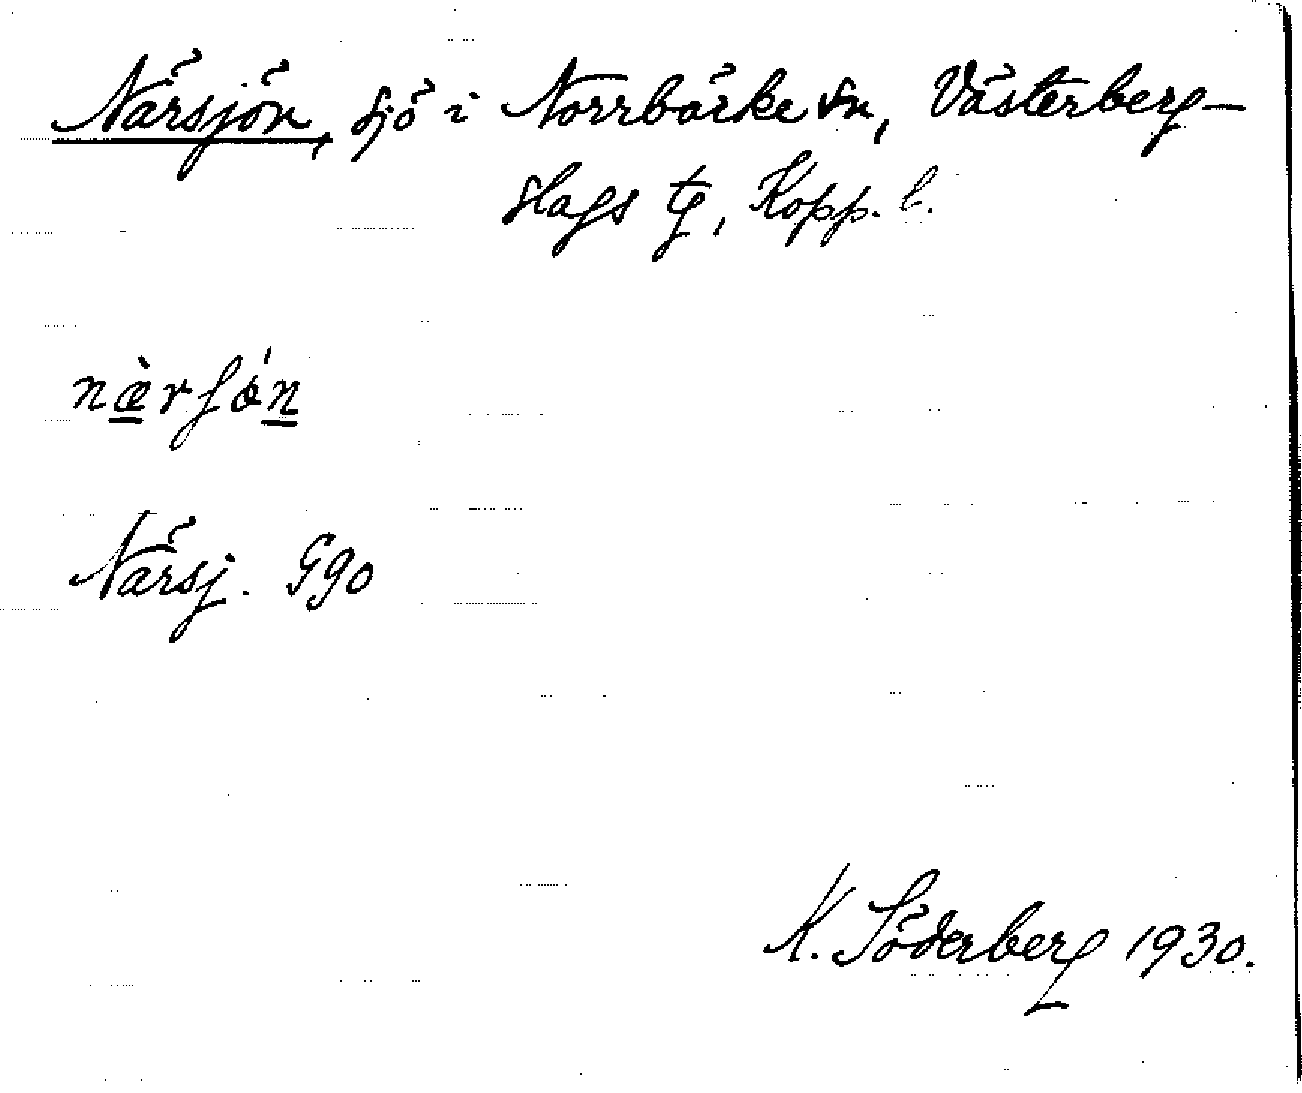 Närsjön, sjö i Norrbärke sn, Västerberg-
slags tg, Kopp. l.
næ̀rʃǿn
Närsj. G90
K. Söderberg 1930.